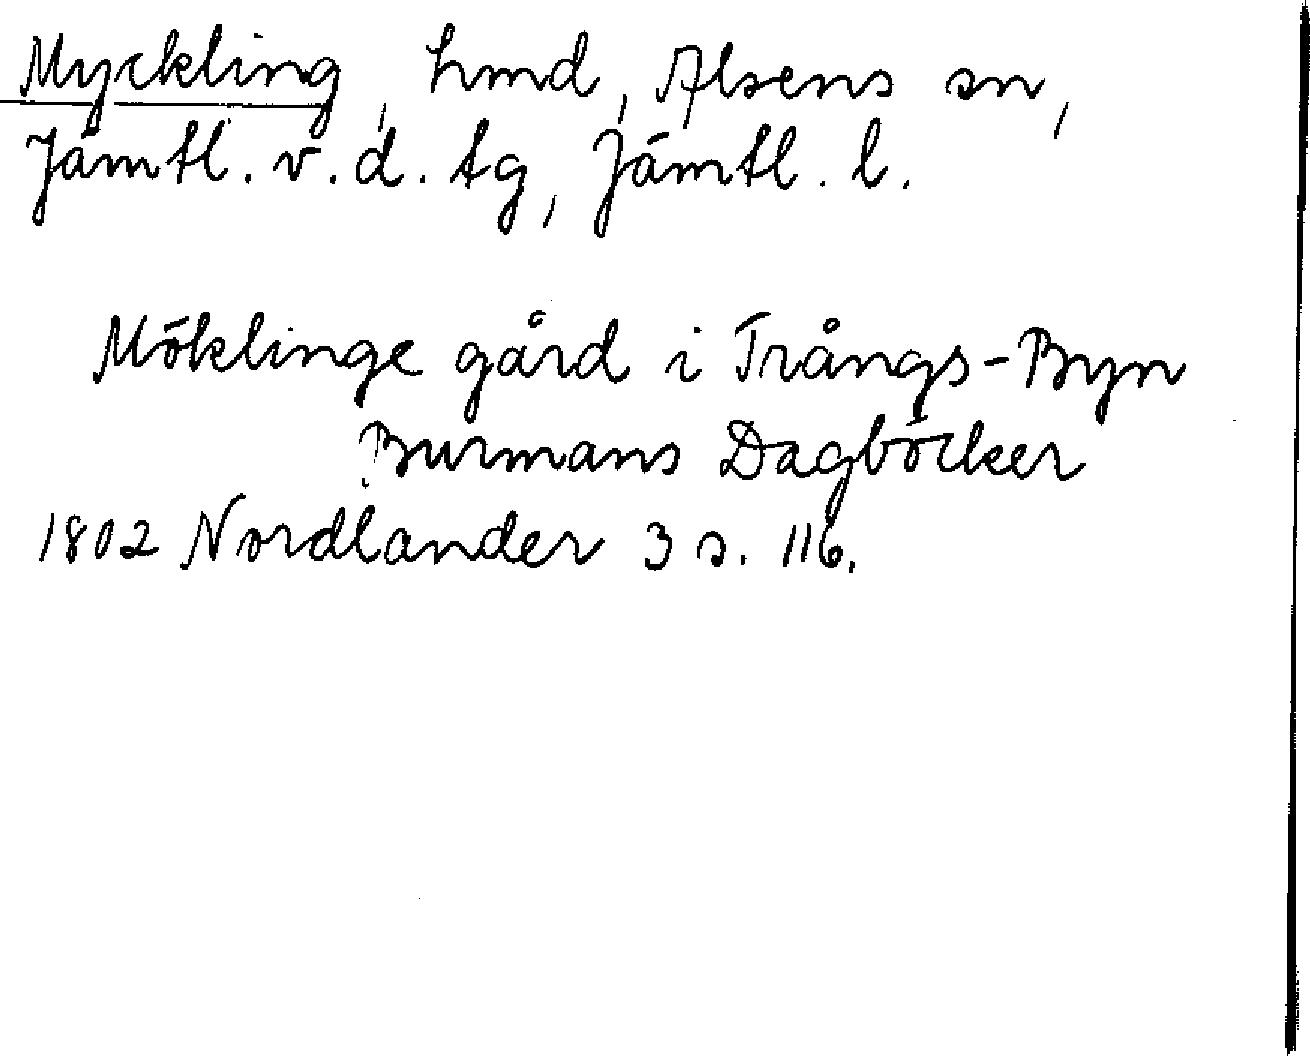 Myckling, hmd, Alsens sn,
Jämtl. v. d. tg, Jämtl. l.
Möklinge gård i Trångs-Byn
Burmans Dagböcker
1802 Nordlander 3 s. 116.